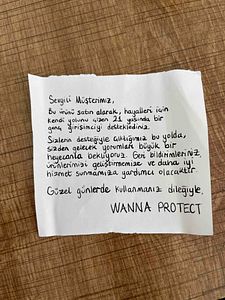 Sevgili Müşterimiz,
Bu ürünü satın alarak, hayalleri için
kendi yolunu çizen 21 yaşında bir
genç girişimciyi desteklediniz.
Sizlerin desteğiyle çıktığımız bu yolda,
sizden gelecek yorumları büyük bir
heyecanla bekliyoruz. Geri bildirimleriniz,
ürünlerimizi geliştirmemize ve daha iyi
hizmet sunmamıza yardımcı olacaktır.
Güzel günlerde kullanmanız dileğiyle,
WANNA PROTECT